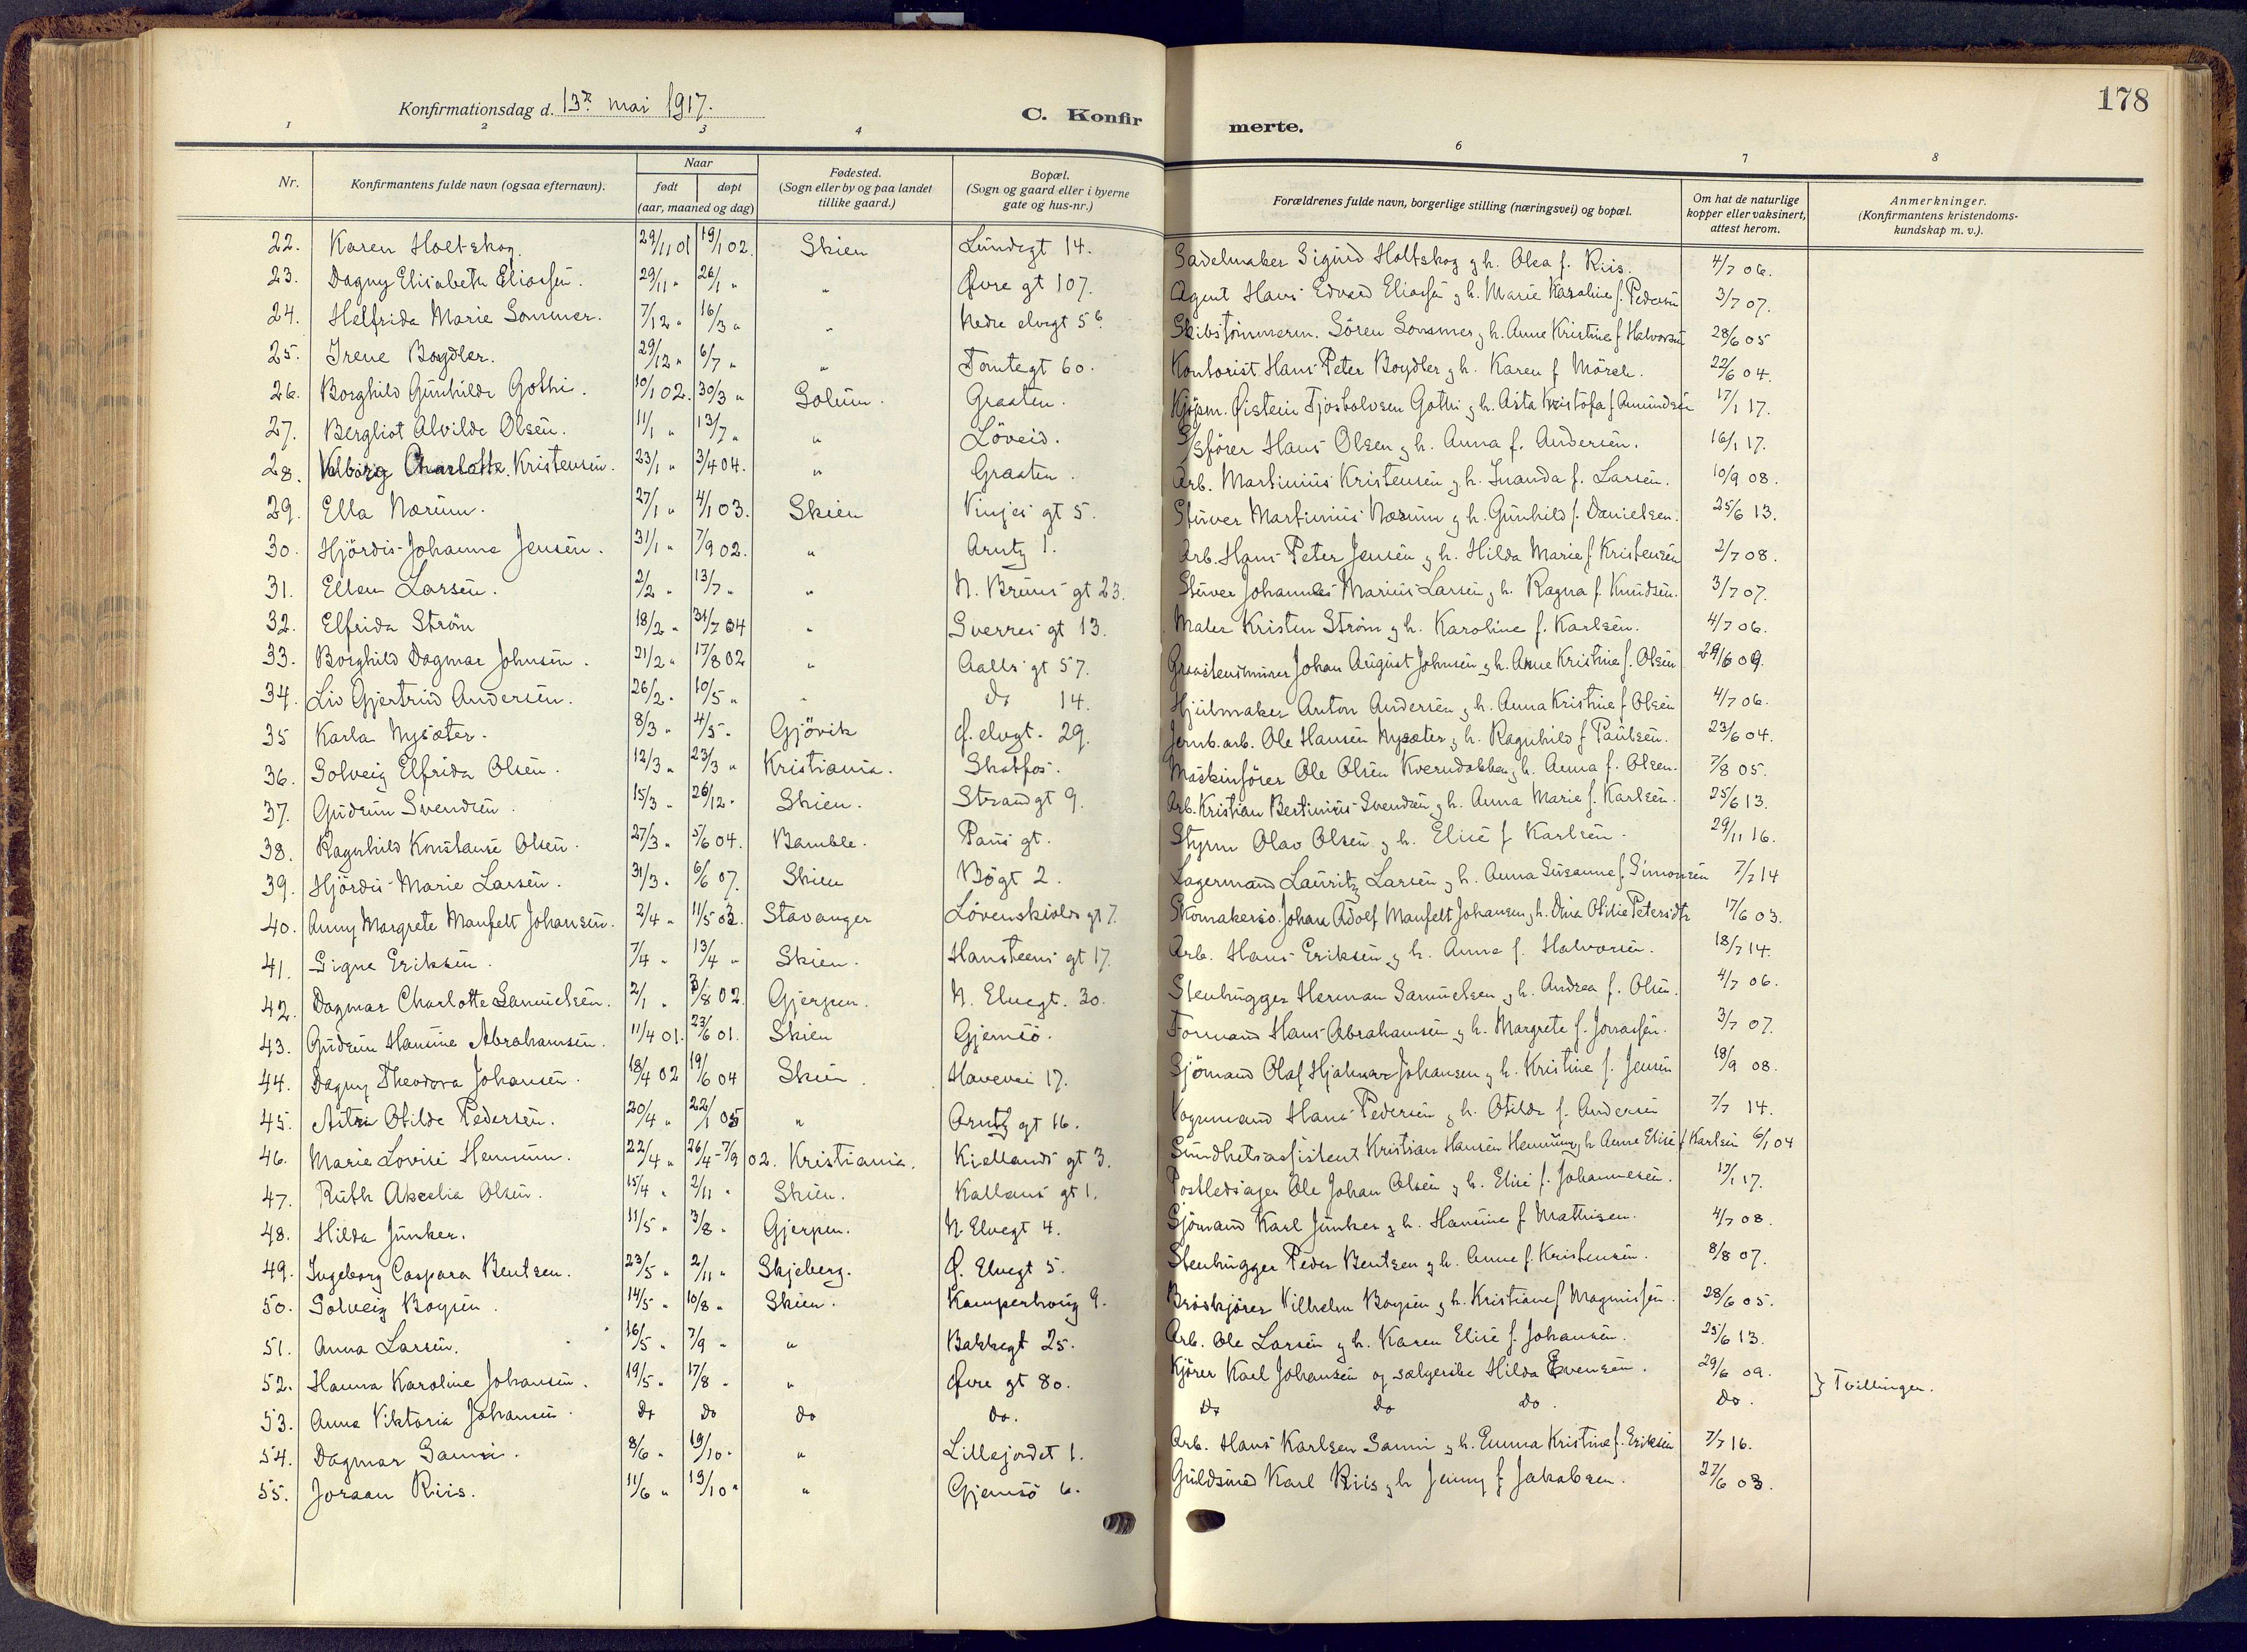 178
Konfirmationsdag d. 13de mai 1917.
C. Konfirmerte.
1 2 3 4 6 7 8
Nr. Konfirmantens fulde navn (ogsaa efternavn). Naar født døpt (aar, maaned og dag) Fødested. (Sogn eller by og paa landet tillike gaard.) Bopæl. (Sogn og gaard eller i byerne gate og hus-nr.) Forældrenes fulde navn, borgerlige stilling (næringsvei) og bopæl. Om hat de naturlige kopper eller vaksinert, attest herom. Anmerkninger. (Konfirmantens kristendomskundskap m. v.).
22. Karen Holtskog. 29/11 01 19/1 02. Skien Lundegt 14. Sadelmaker Sigurd Holtskog g h. Olea f. Riis. 4/7 06.
23. Dagny Elisabeth Eliassen. 29/11 " 26/1 " " Øvre gt 107. Agent Hans Edvard Eliassen g h. Marie Karoline f. Pedersen 3/7 07.
24. Helfrida Marie Sommer. 7/12 " 16/3 " " Nedre elvegt 5 b. Skibstømmerm. Sören Sommer g h. Anne Kristine f Halvorsen 28/6 05
25. Irene Boydler. 29/12 " 6/7 " " Tomtegt 60. Kontorist Hans Peter Boydler g h. Karen f Mörch. 22/6 04.
26. Borghild Gunhilde Gothi. 10/1 02. 30/3 " Solum. Graaten. Kjöpm. Øistein Tjostolvsen Gothi g h. Asta Kristofa f Amundsen 17/1 17.
27. Bergliot Alvilde Olsen. 11/1 " 13/7 " " Löveid. S/sförer Hans Olsen g h. Anna f. Andersen. 16/1 17.
28. Valborg Charlotte Kristensen. 23/1 " 3/4 04. " Graaten. Arb. Martinius Kristensen g h. Inanda f. Larsen. 10/9 08.
29. Ella Nærum. 27/1 " 4/1 03. Skien Vinjes gt 5. Stuver Martinius Nærum g h. Gunhild f. Danielsen. 25/6 13.
30. Hjördis Johanna Jensen. 31/1 " 7/9 02. " Arntz 1. Arb. Hans Peter Jensen g h. Hilda Marie f Kristensen 2/7 08.
31. Ellen Larsen. 2/2 " 13/7 " " N. Bruns gt 23. Stuver Johannes Marius Larsen g h. Ragna f. Knudsen. 3/7 07.
32. Elfrida Ström 18/2 " 31/7 04 " Sverres gt 13. Maler Kristen Ström g h. Karoline f. Karlsen. 4/7 06.
33. Borghild Dagmar Johnsen. 21/2 " 17/8 02 " Aalls gt 57. Graastensmurer Johan August Johnsen g h. Anne Kristine f. Olsen 29/6 09.
34. Liv Gjertrud Andersen. 26/2 " 10/5 " " do 14. Hjulmaker Anton Andersen g h. Anna Kristine f Olsen 4/7 06.
35 Karla Nysæter. 8/3 " 4/5 " Gjövik Ø. elvgt. 29. Jernb. arb. Ole Hansen Nysæter g h. Ragnhild f Paulsen. 23/6 04.
36. Solveig Elfrida Olsen. 12/3 " 23/3 " Kristiania. Skotfos. Maskinförer Ole Olsen Kverndokken g h. Anna f. Olsen. 7/8 05.
37. Gudrun Svendsen. 15/3 " 26/12 " Skien. Strandgt 9. Arb. Kristian Bertinius Svendsen g h. Anna Marie f. Karlsen. 25/6 13.
38. Ragnhild Konstanse Olsen. 27/3 " 5/6 04. Bamble. Paus gt. Styrm Olav Olsen g h. Elise f Karlsen. 29/11 16.
39. Hjördis Marie Larsen. 31/3 " 6/6 07. Skien Bögt 2. Lagermand Lauritz Larsen g h. Anna Susanne f. Simonsen 7/7 14
40. Anny Margrete Manfelt Johansen. 2/4 " 11/5 02. Stavanger Lövenskiolds gt 7. Skomakersv. Johan Adolf Manfelt Johansen g h. Dina Otilie Petersdtr 17/6 03.
41. Signe Eriksen. 7/4 " 13/4 " Skien. Hansteens gt 17. Arb. Hans Eriksen g h. Anne f. Halvorsen. 18/7 14.
42. Dagmar Charlotte Samuelsen. 2/1 " 3/8 02. Gjerpen. N. Elvegt. 30. Stenhugger Herman Samuelsen g h. Andrea f. Olsen. 4/7 06.
43. Gudrun Hansine Abrahamsen. 11/4 01. 23/6 01. Skien Gjemsö. Formand Hans Abrahamsen g h. Margrete f. Jonassen. 3/7 07.
44. Dagny Theodora Johansen. 18/4 02 19/6 04 Skien. Havevei 17. Sjömand Olaf Hjalmar Johansen g h. Kristine f. Jensen 18/9 08.
45. Astri Otilde Pedersen. 20/4 " 22/1 05 " Arntz gt 16. Vognmand Hans Pedersen g h. Otilde f. Andersen 7/7 14.
46. Marie Lovise Hennum. 22/4 " 26/4 - 7/9 02. Kristiania. Kiellands gt 3. Sundhetsassistent Kristian Hansen Hennum g h Anne Elise f Karlsen 6/1 04
47. Ruth Akselia Olsen. 15/4 " 2/11 " Skien. Kallans gt 1. Postledsager Ole Johan Olsen g h. Elise f. Johannesen. 17/1 17.
48. Hilda Junker. 11/5 " 3/8 " Gjerpen. N. Elvegt 4. Sjömand Karl Junker g h. Hansine f Mathisen. 4/7 08.
49. Ingeborg Caspara Bentsen. 23/5 " 2/11 " Skjeberg. Ø. Elvegt 5. Stenhugger Peder Bentsen g h. Anne f. Kristensen. 8/8 07.
50. Solveig Boysen. 14/5 " 10/8 " Skien. Kamperhoug 9. Bröskjörer Vilhelm Boysen g h. Kristiane f Magnussen. 28/6 05.
51. Anna Larsen. 16/5 " 7/9 " " Bakkegt 25. Arb. Ole Larsen g h. Karen Elise f. Johansen. 25/6 13.
52. Hanna Karoline Johansen. 19/5 " 17/8 " " Øvre gt 80. Kjörer Karl Johansen og sælgerske Hilda Evensen. 29/6 09. } Tvillinger.
53. Anna Viktoria Johansen. do do do do. do do do. do.
54. Dagmar Sanni. 8/6 " 19/10 " " Lillejordet 1. Arb. Hans Karlsen Sanni g h. Emma Kristine f. Eriksen 7/7 16.
55. Joraan Riis. 11/6 " 19/10 " " Gjemsö 6. Guldsmed Karl Riis g h Jenny f Jakobsen. 27/6 03.